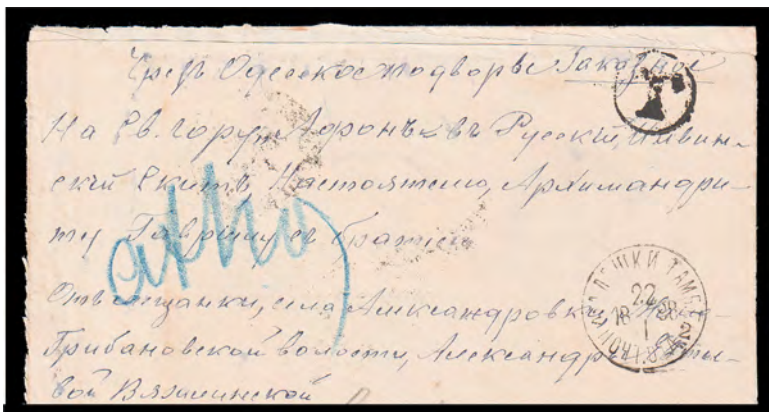 Чрезъ Одесское подворье Заказное
Т
На Св. гору Афонъ въ Русскій Ильин-
скій Скитъ Настоятелю, Архимандри-
ту Гавріилу съ братіею
Отъ мещанки, села Александровки,
Грибановской волости, Александры
вой Вяжлинской
22
18 98
I